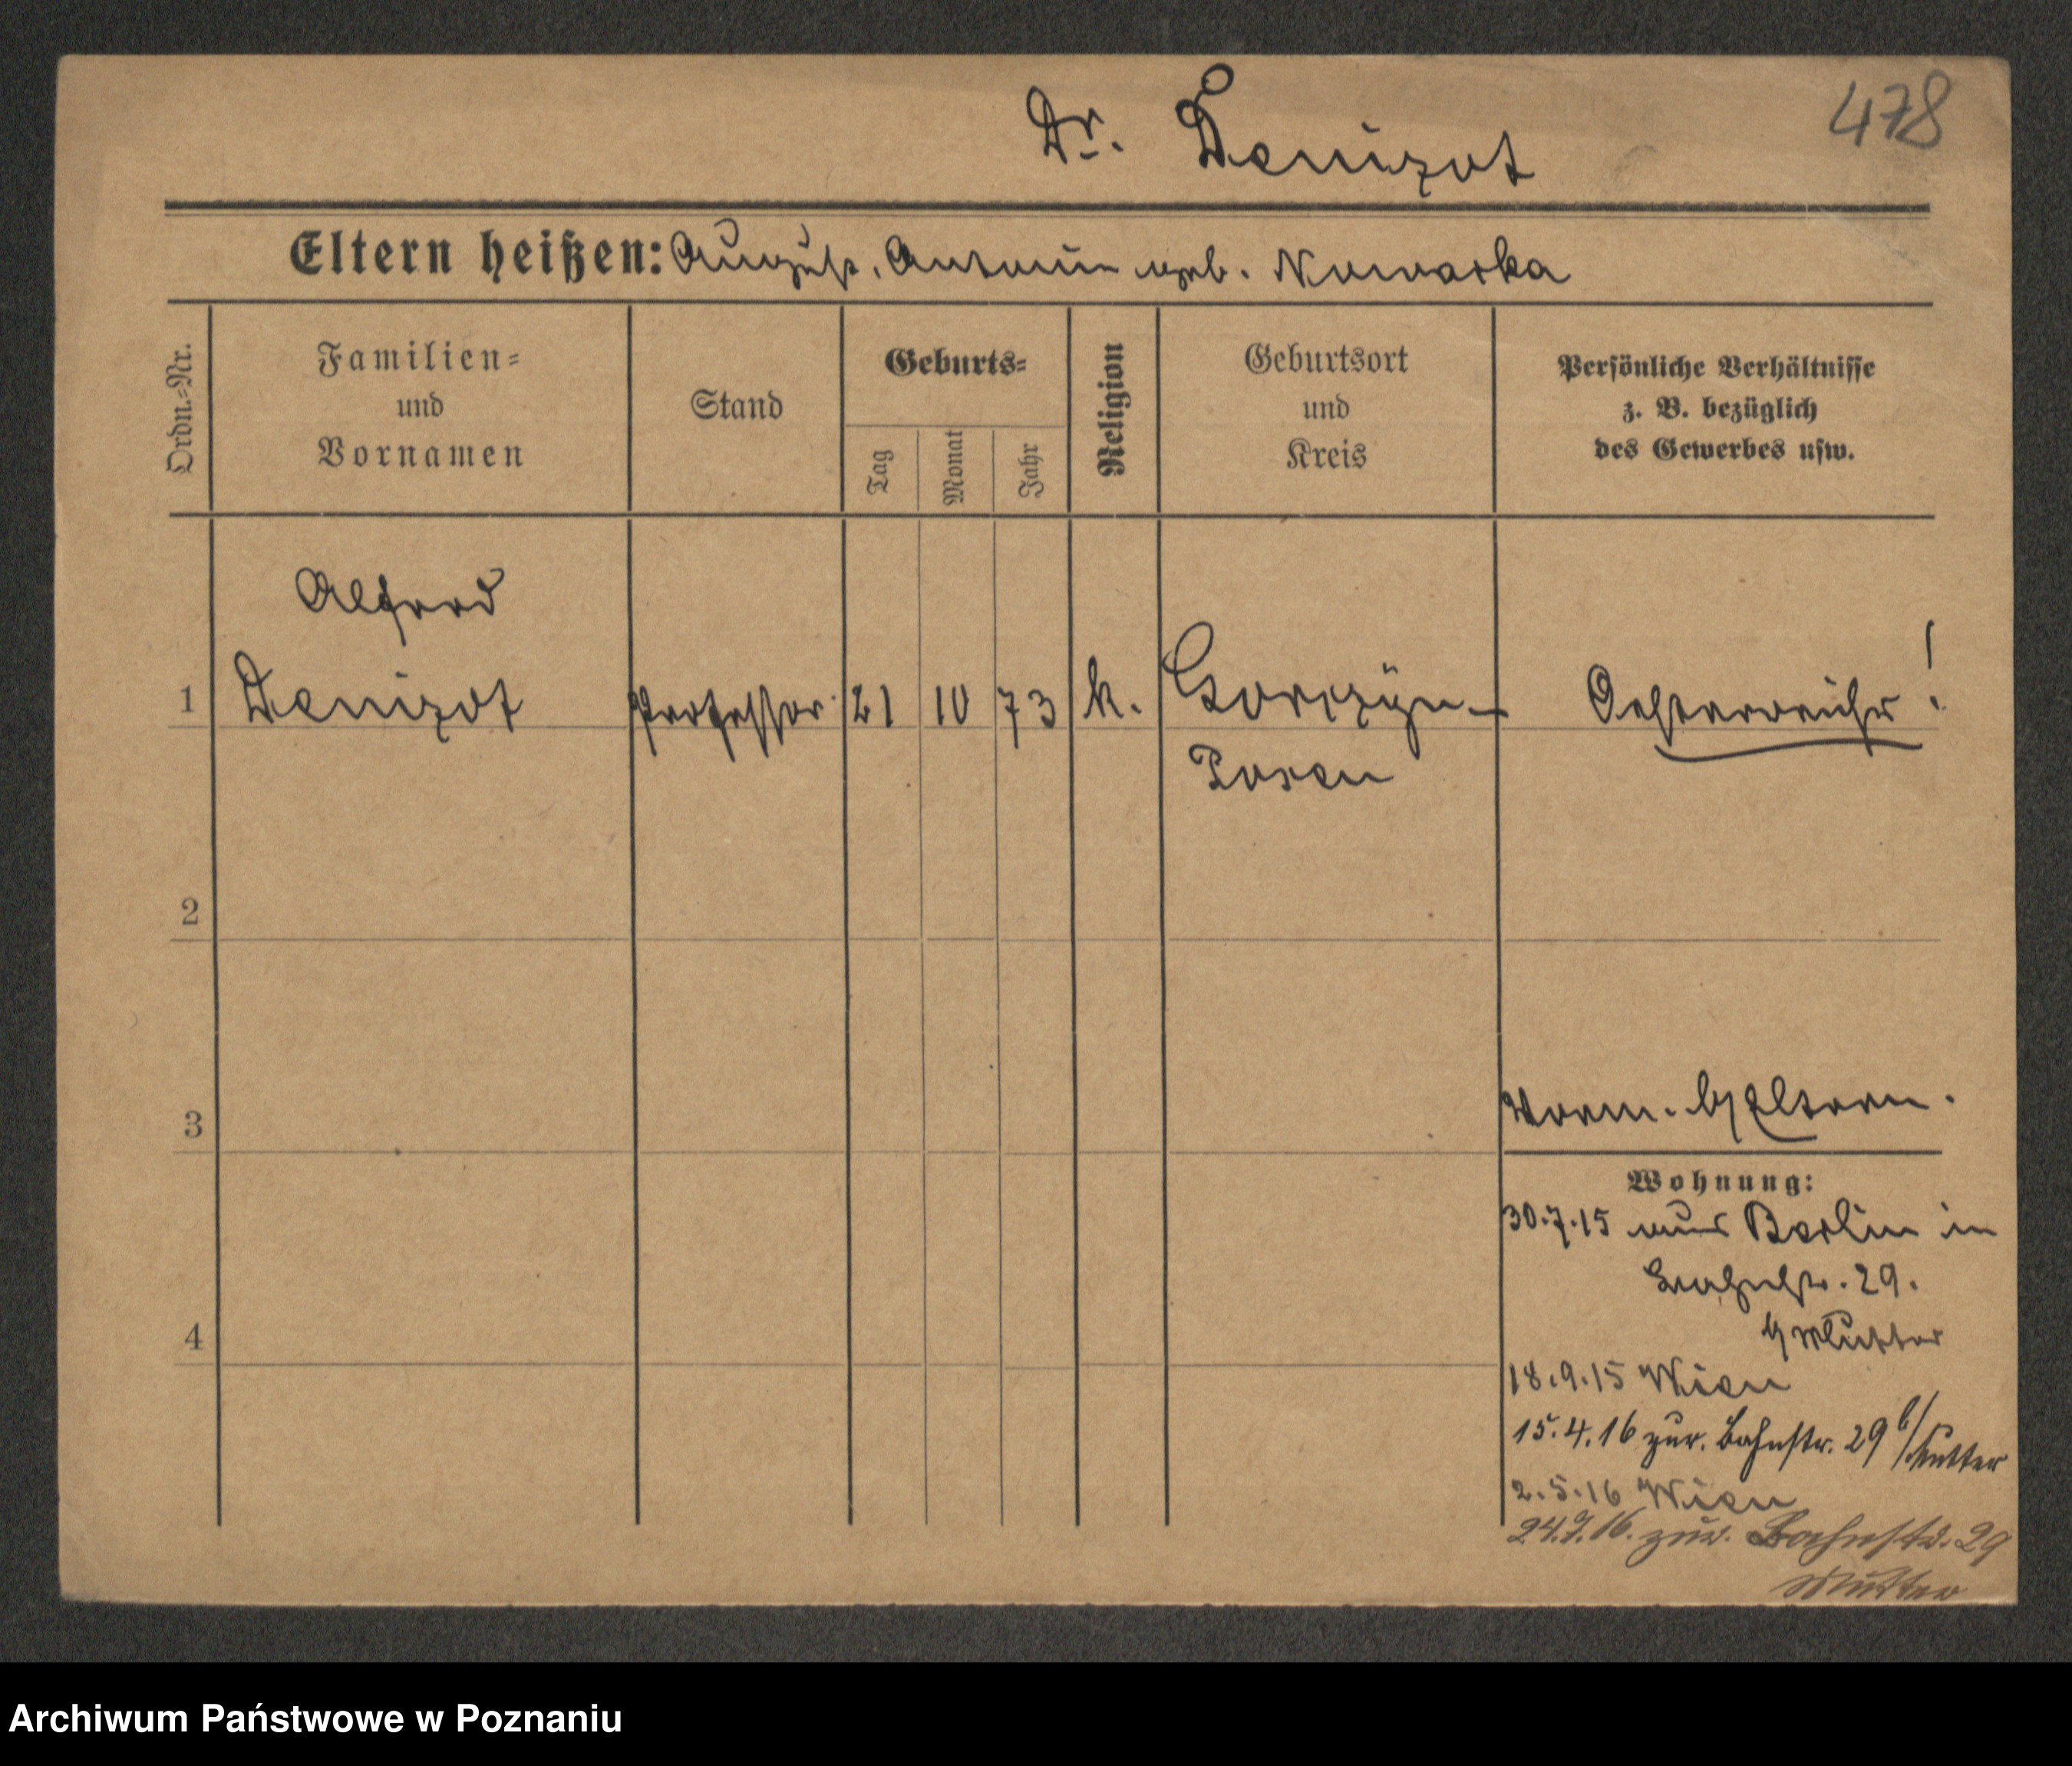 478
Dr. Denizot
Eltern heißen: August, Antonie geb. Nowacka
Ordn.-Nr.
Familien-
und
Vornamen
Stand
Geburts-
Tag
Monat
Jahr
Religion
Geburtsort
und
Kreis
Persönliche Verhältnisse
z. B. bezüglich
des Gewerbes usw.
Alfred
1 Denizot Professor 21 10 73 k. Gorczyn - Oesterreicher!
Posen
2
3
Vorm. b/Eltern.
Wohnung:
30.7.15 aus Berlin in
Bahnstr. 29.
b/Mutter
4
18.9.15 Wien
15.4.16 zur. Bahnstr. 29 b/Mutter
2.5.16 Wien
24.7.16. zur. Bahnstr. 29
Mutter
Archiwum Państwowe w Poznaniu